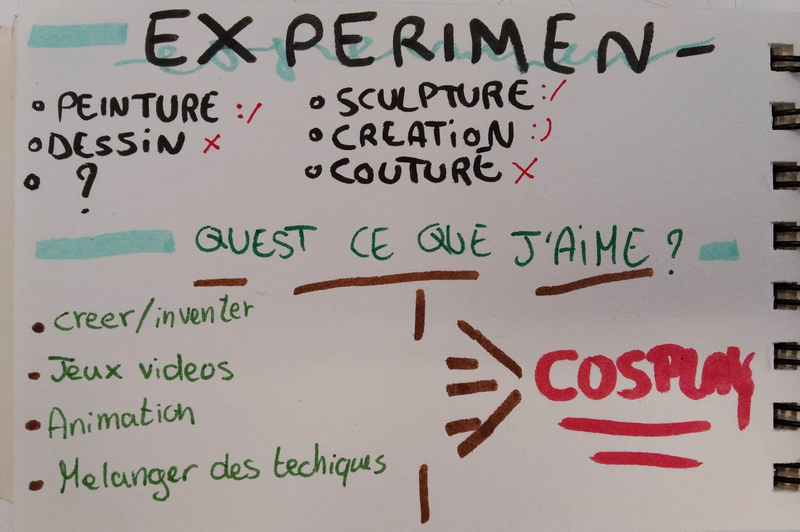 EXPERIMEN-
• PEINTURE :/
• DESSIN x
• ?
• SCULPTURE :/
• CREATION :)
• COUTURE x
QUEST CE QUE J'AIME ?
• creer/inventer
• Jeux videos
• Animation
• Melanger des techiques
COSPLAY